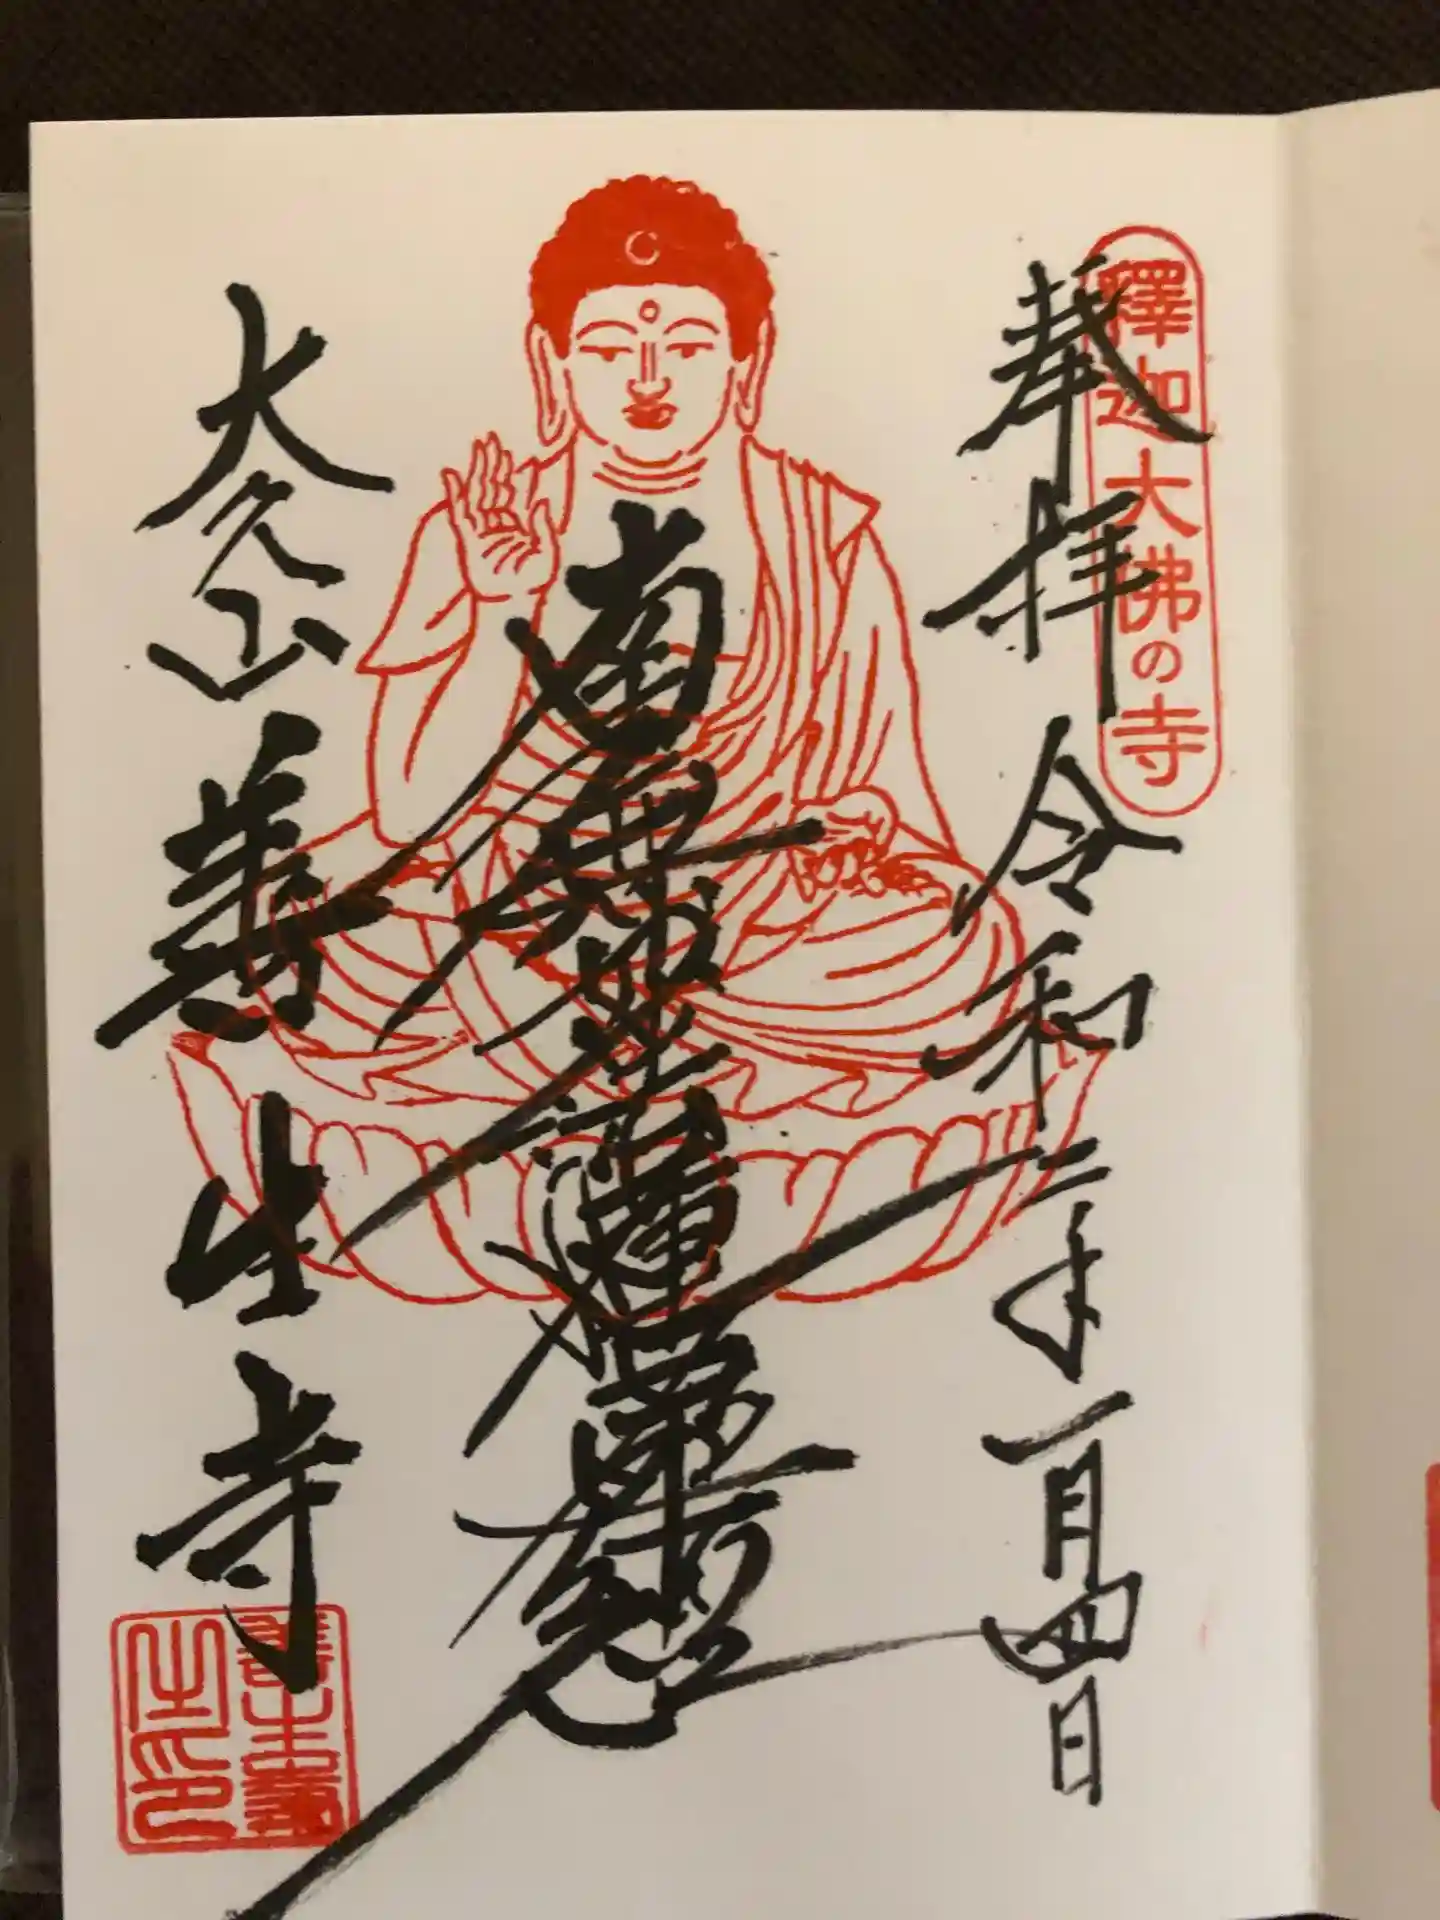 釋迦大佛の寺
奉拝 令和二年一月四日
南無妙法蓮華經
大久山 善生寺
善生寺之印